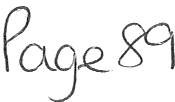 Page 89